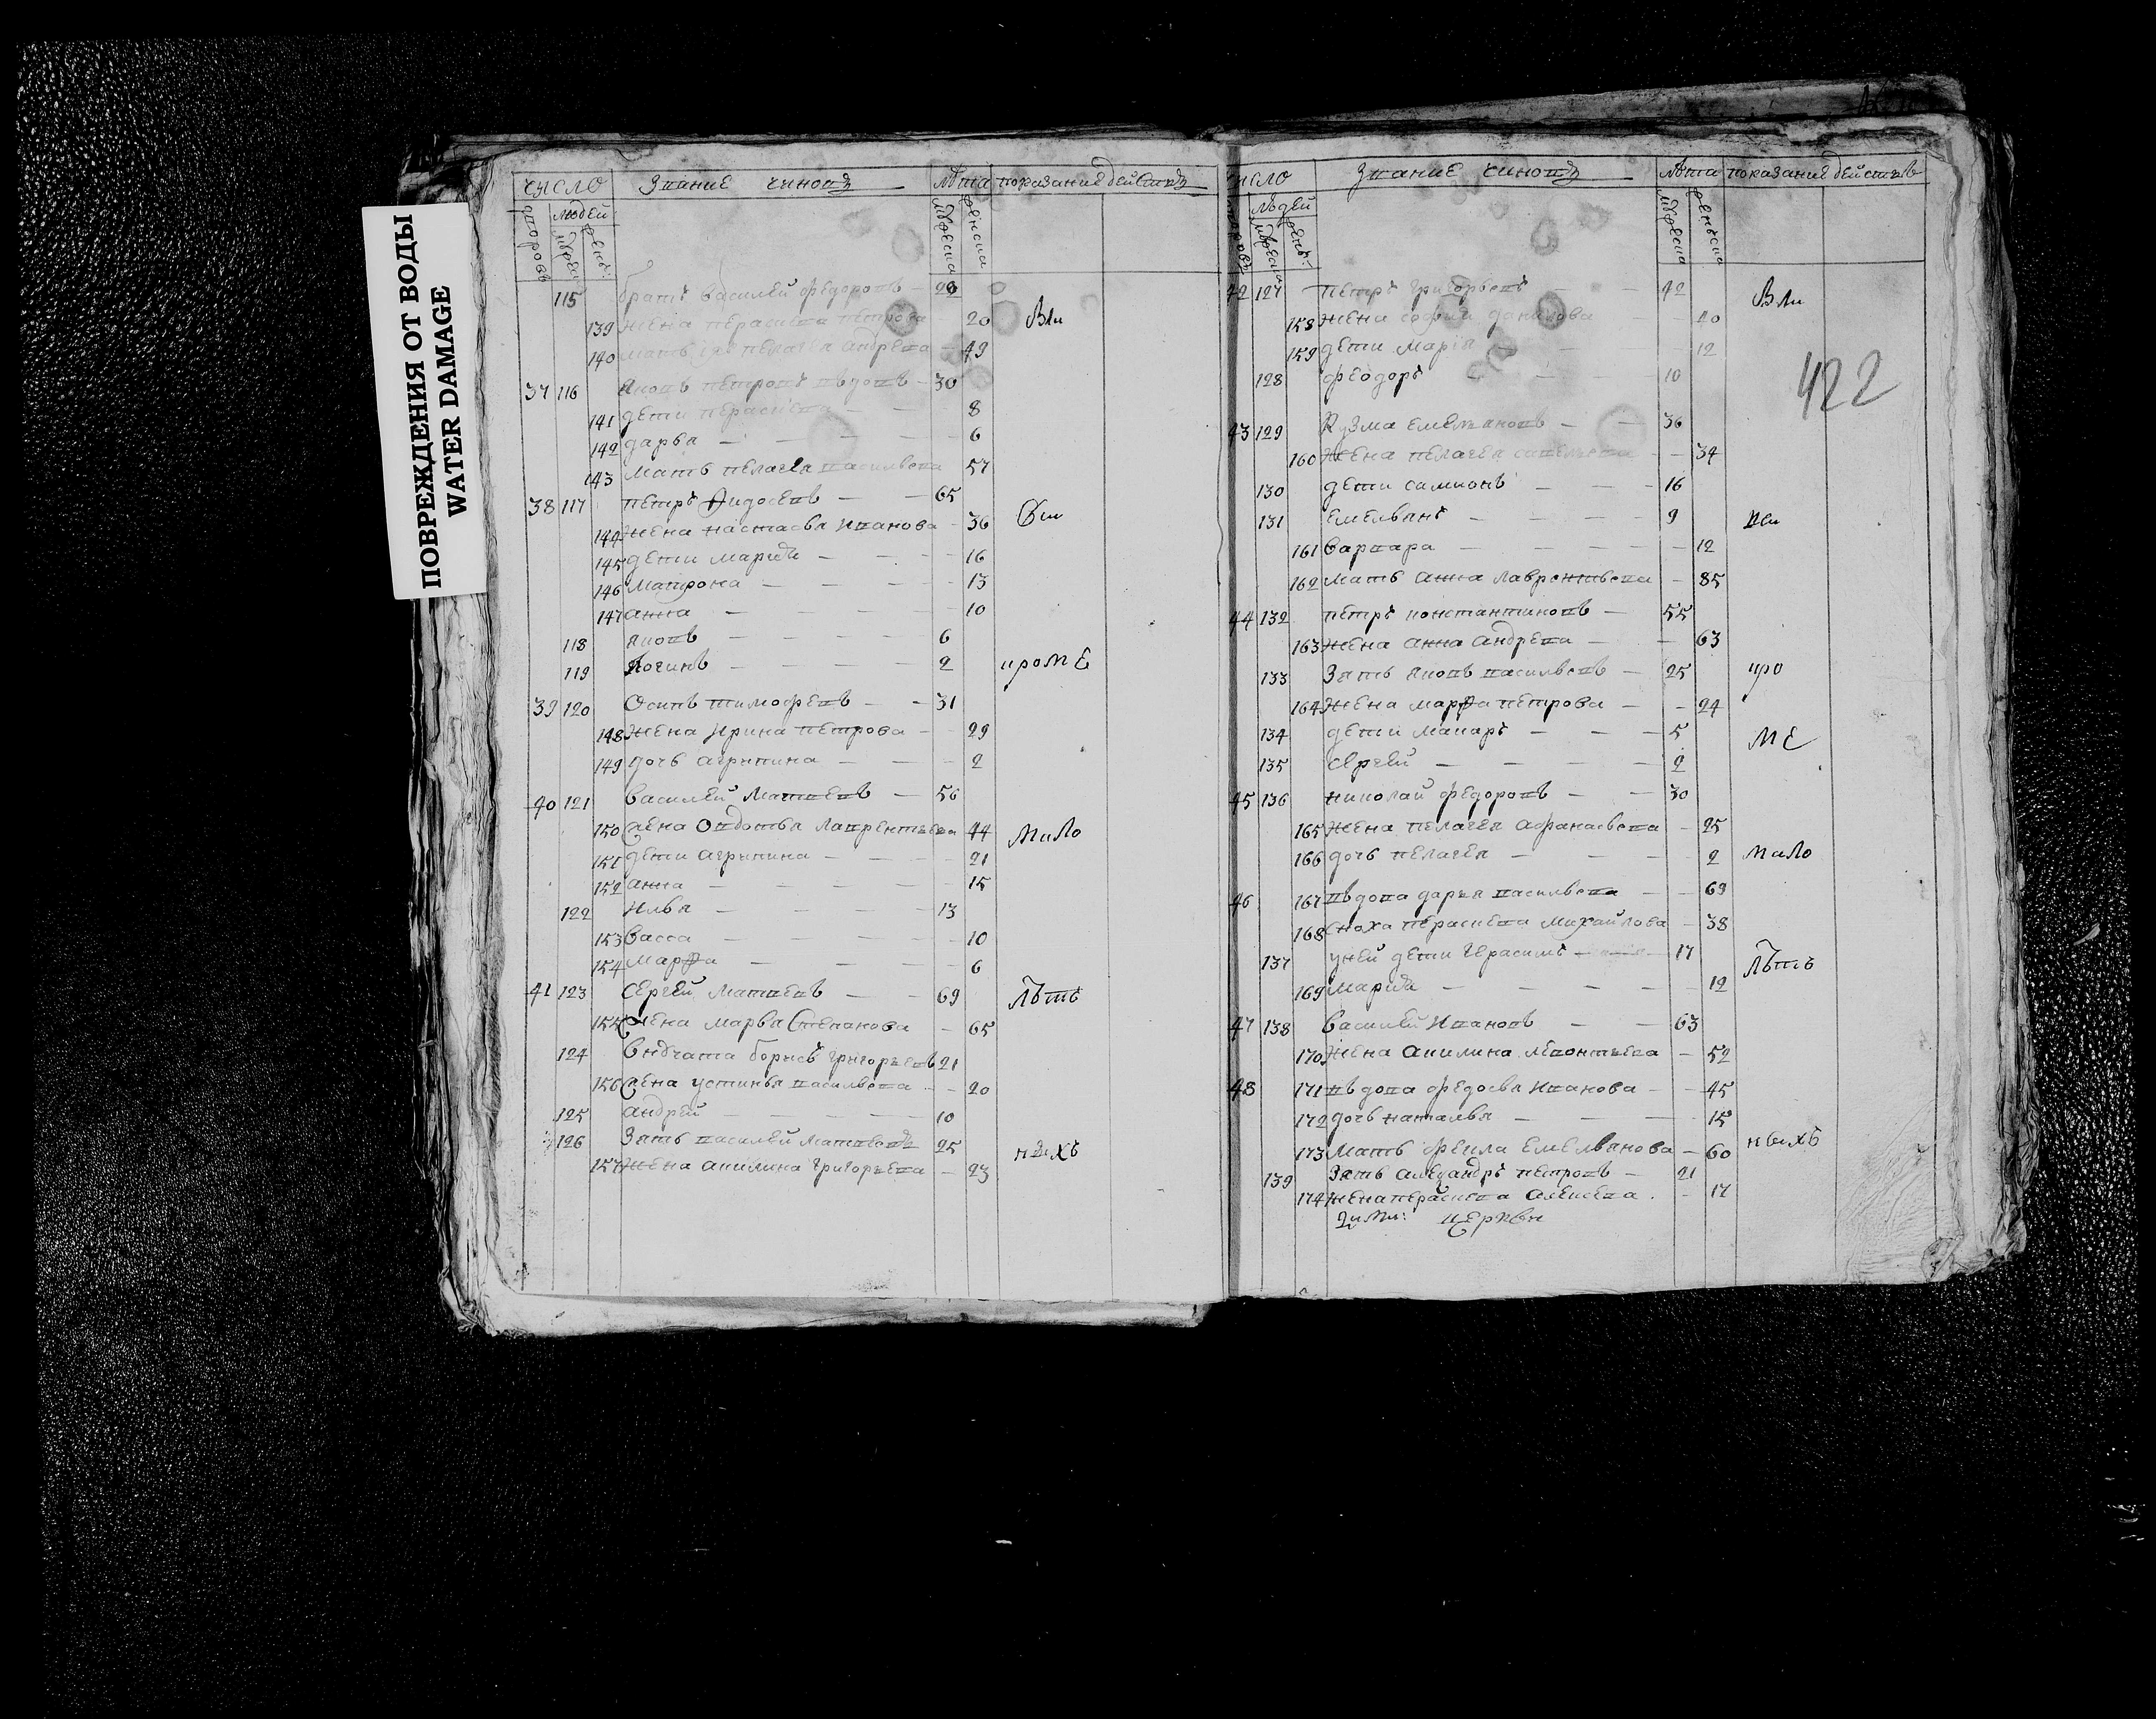 ПОВРЕЖДЕНИЯ ОТ ВОДЫ
WATER DAMAGE
число Звание чиновъ Лѣта показание действъ
дворовъ людей мужеска женска
115 братъ Василей Федоровъ — 29
139 жена Парасковья Петрова 20
Были
140 мать их Пелагея Андрева 49
37 116 Яковъ Петровъ вдовъ — 30
141 дети Парасковья — 8
142 Дарья — 6
143 мать Пелагея Васильева 57
38 117 Петръ — 65
144 жена Настасья Иванова 36
145 дети Мария — 16
146 Матрона — 13
147 Анна — 10
118 Яковъ — 6
119 Логинъ — 2
кроме
39 120 Осипъ Тимофеевъ — 31
148 жена Ирина Петрова — 29
149 дочь Агрыпина — 2
40 121 Василей Матвеевъ — 56
150 жена Овдотья Лаврентьева 44
мало
151 дети Агрыпина — 21
152 Анна — 15
122 Илья — 13
153 Васса — 10
154 Марфа — 6
41 123 Сергей Матвеевъ — 69
лѣтъ
155 жена Марья Степанова — 65
124 внучата Борисъ Григорьевъ 21
156 жена Устинья Васильева — 20
125 Андрей — 10
126 Зять Василей Матвеевъ 25
ныхъ
157 жена Акилина Григорьева — 23
число Звание чиновъ Лѣта показание действъ
людей мужеска женска
42 127 Петръ Григорьевъ — 42
Были
158 жена Софья Данилова — 40
159 дети Мария — 12
128 Феодоръ — 10
422
43 129 Кузма Емельяновъ — 36
160 жена Пелагея Савельева — 34
130 дети Самсонъ — 16
131 Емельянъ — 9
161 Варвара — 12
162 мать Анна Лаврентьева — 85
44 132 Петръ Константиновъ — 55
163 жена Анна Андрева — 63
133 Зять Яковъ Васильевъ — 25
кро
164 жена Марфа Петрова — 24
134 дети Макаръ — 5
ме
135 Сергей — 2
45 136 Николай Федоровъ — 30
165 жена Пелагея Афанасьева — 25
166 дочь Пелагея — 2
мало
46 167 вдова Дарья Васильева — 69
168 сноха Парасковья Михайлова — 38
137 у ней дети Герасимъ — 17
лѣтъ
169 Мария — 12
47 138 Василей Ивановъ — 63
170 жена Акилина Леонтьева — 52
48 171 вдова Федосья Иванова — 45
172 дочь Наталья — 15
ныхъ
173 Мать Фекла Емельянова — 60
139 Зять Александръ Петровъ — 21
174 жена Парасковья Алексева — 17
церкви